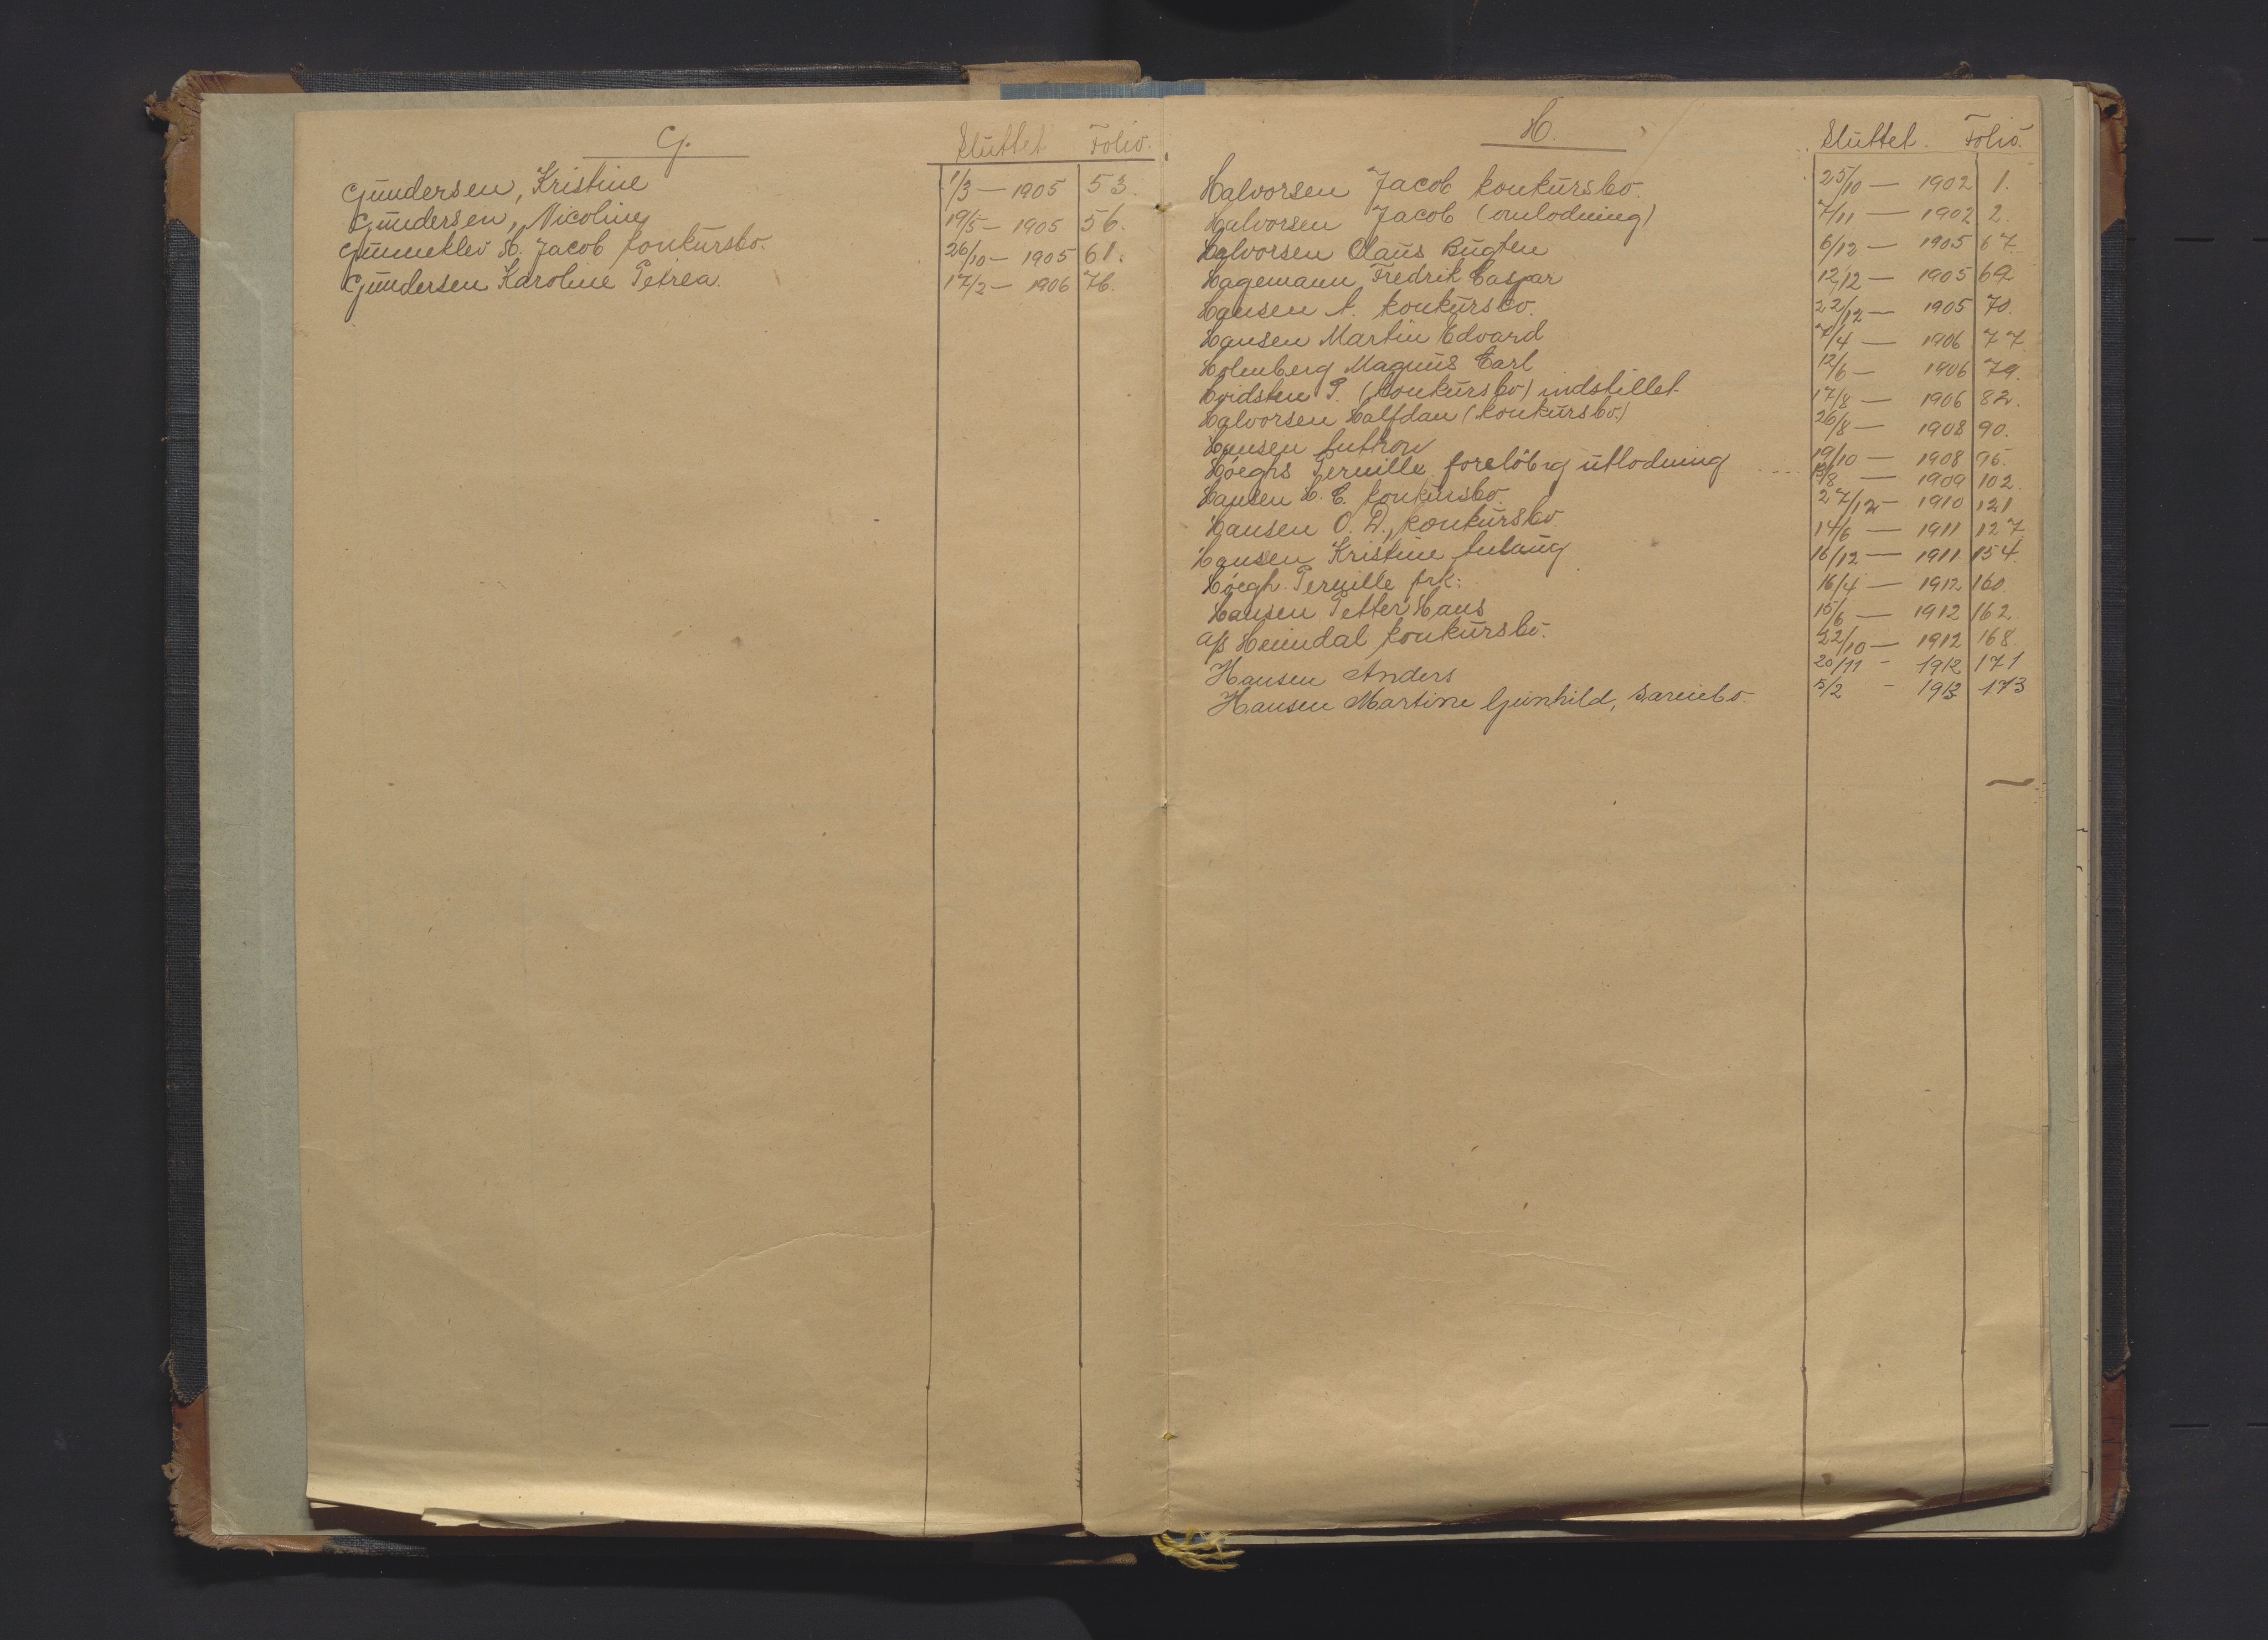 G. Sluttet Folio.
Gundersen, Kristine 1/3 — 1905 53.
Gundersen, Nicoline 19/5 — 1905 56.
Gunneklev H. Jacob konkursbo. 26/10 — 1905 61.
Gundersen Karoline Petrea. 17/2 — 1906 76.
H. Sluttet. Folio.
Halvorsen Jacob konkursbo. 25/10 — 1902 1.
Halvorsen Jacob (omlodning) 7/11 — 1902 2.
Halvorsen Claus Bugten 6/12 — 1905 67
Hagemann Fredrik Caspar 12/12 — 1905 69
Hansen A. konkursbo. 22/12 — 1905 70.
Hansen Martin Edvard 7/4 — 1906 77
Holmberg Magnus Carl 12/6 — 1906 79.
Hvidsten P. (konkursbo) indstillet 17/8 — 1906 82.
Halvorsen Halfdan (konkursbo.) 26/8 — 1908 90.
Hansen Anthon 19/10 — 1908 95.
Höeghs Pernille foreløbig utlodning 1909 102.
Hansen H. C. konkursbo. 27/12 — 1910 121
Hansen O. D., konkursbo. 14/6 — 1911 127
Hansen Kristine Anlaug 16/12 — 1911 154.
Höegh Pernille frk: 16/4 — 1912 160.
Hansen Petter Hans 15/6 — 1912 162.
A/S Heimdal konkursbo. 22/10 — 1912 168.
Hansen Anders 20/11 - 1912 171
Hansen Martine Gunhild, særeiebo. 5/2 - 1913 173